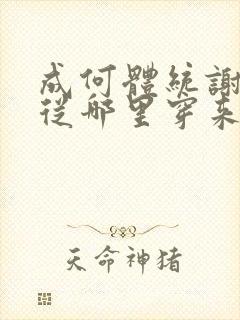 成何體統謝
從哪里穿來
天命神猪